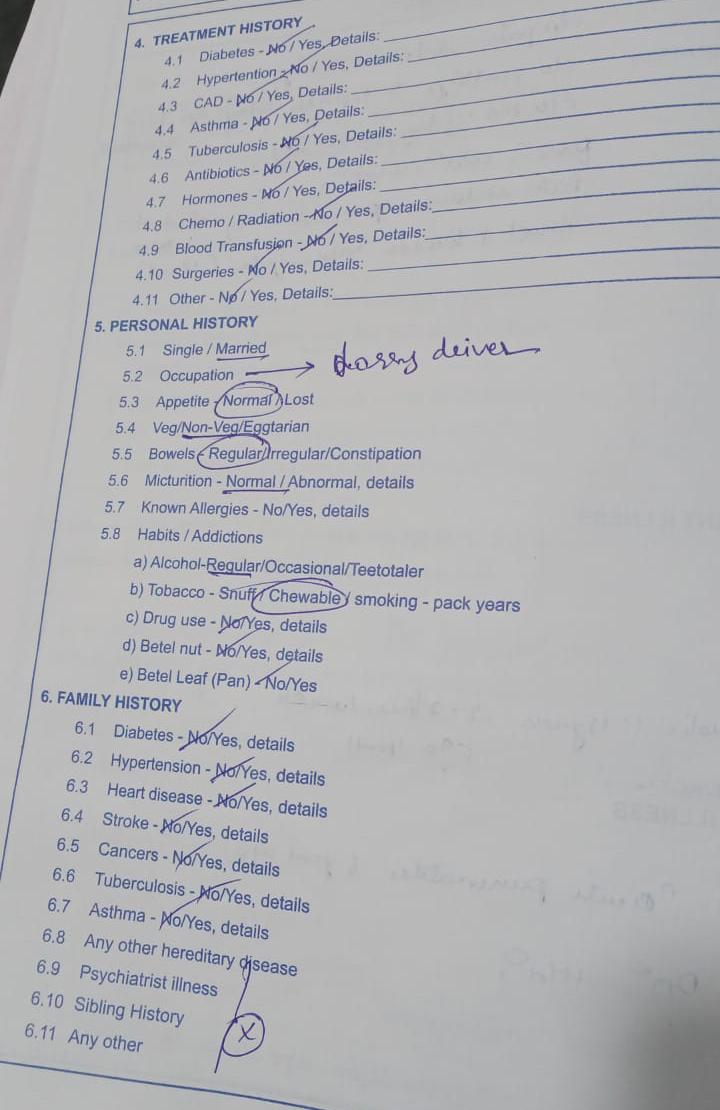 4. TREATMENT HISTORY
4.1 Diabetes - No / Yes, Details:
4.2 Hypertention - No / Yes, Details:
4.3 CAD - No / Yes, Details:
4.4 Asthma - No / Yes, Details:
4.5 Tuberculosis - No / Yes, Details:
4.6 Antibiotics - No / Yes, Details:
4.7 Hormones - No / Yes, Details:
4.8 Chemo / Radiation - No / Yes, Details:
4.9 Blood Transfusion - No / Yes, Details:
4.10 Surgeries - No / Yes, Details:
4.11 Other - No / Yes, Details:
5. PERSONAL HISTORY
5.1 Single / Married
5.2 Occupation → deiver
5.3 Appetite - Normal / Lost
5.4 Veg/Non-Veg/Eggtarian
5.5 Bowels - Regular/Irregular/Constipation
5.6 Micturition - Normal / Abnormal, details
5.7 Known Allergies - No/Yes, details
5.8 Habits / Addictions
a) Alcohol-Regular/Occasional/Teetotaler
b) Tobacco - Snuff / Chewable / smoking - pack years
c) Drug use - No/Yes, details
d) Betel nut - No/Yes, details
e) Betel Leaf (Pan) - No/Yes
6. FAMILY HISTORY
6.1 Diabetes - No/Yes, details
6.2 Hypertension - No/Yes, details
6.3 Heart disease - No/Yes, details
6.4 Stroke - No/Yes, details
6.5 Cancers - No/Yes, details
6.6 Tuberculosis - No/Yes, details
6.7 Asthma - No/Yes, details
6.8 Any other hereditary disease
6.9 Psychiatrist illness
6.10 Sibling History
6.11 Any other
X